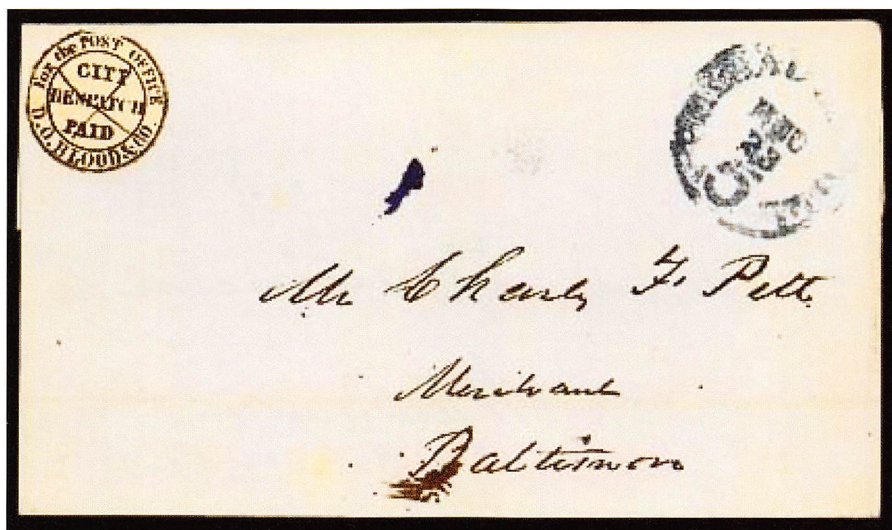 For the POST OFFICE
CITY
DESPATCH
PAID
D.O. BLOOD & CO
23
Mr Charles F. Pitt
Merchant
Baltimore